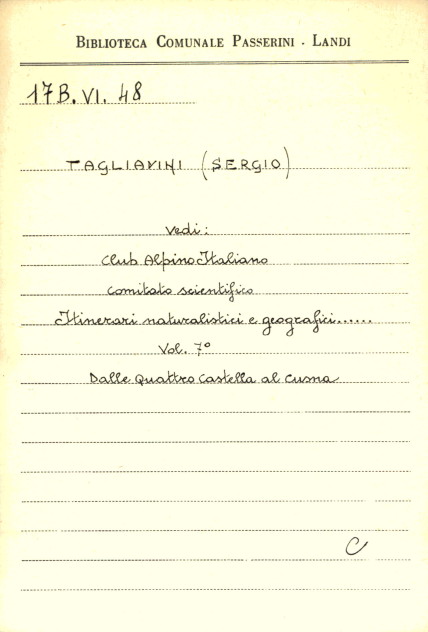 BIBLIOTECA COMUNALE PASSERINI - LANDI
17B. VI. 48
TAGLIAVINI (SERGIO)
Vedi:
Club Alpino Italiano
Comitato scientifico
Itinerari naturalistici e geografici......
Vol. 7º
Dalle Quattro Castella al Cusna
C